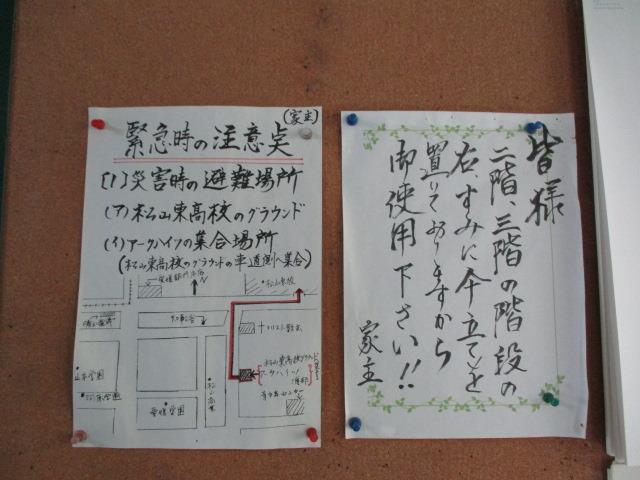 (家主)
緊急時の注意点
(1)災害時の避難場所
(ア)松山東高校のグラウンド
(イ)アークハイツの集合場所
(松山東高校のグラウンドの車道側へ集合)
N
キリスト教会
松山東高校グラウンド
アークハイツ
山本学園
河原学園
愛媛学園
皆様
二階、三階の階段の
右、すみに傘立てを
置いておりますから
御使用下さい!!
家主